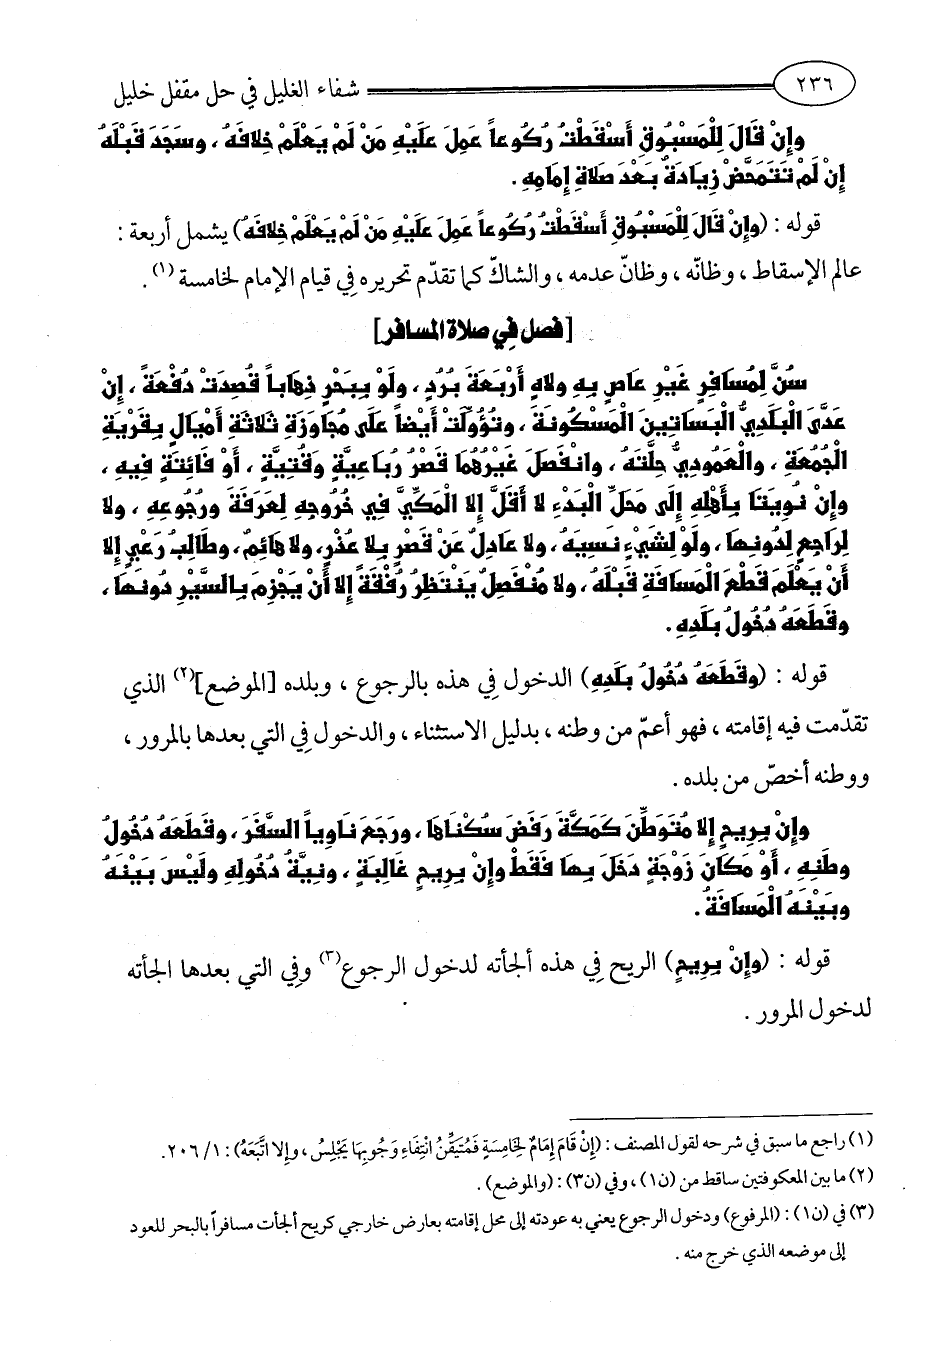 ٢٣٦ شفاء الغليل في حل مقفل خليل
وإِنْ قَالَ لِلْمَسْبُوقِ أَسْقَطْتُ رُكُوعاً عَمِلَ عَلَيْهِ مَنْ لَمْ يَعْلَمْ خِلافَهُ ، وسَجَدَ قَبْلَهُ
إِنْ لَمْ تَتَمَحَّضْ زِيَادَةٌ بَعْدَ صَلاةِ إِمَامِهِ .
قوله : (وإِنْ قَالَ لِلْمَسْبُوقِ أَسْقَطْتُ رُكُوعاً عَمِلَ عَلَيْهِ مَنْ لَمْ يَعْلَمْ خِلافَهُ) يشمل أربعة :
عالم الإسقاط ، وظانّه ، وظانّ عدمه ، والشاكّ كما تقدّم تحريره فِي قيام الإمام لخامسة (١) .
[فصل فِي صلاة المسافر]
سُنَّ لِمُسَافِرٍ غَيْرِ عَاصٍ بِهِ ولاهٍ أَرْبَعَةَ بُرُدٍ ، ولَوْ بِبَحْرٍ ذِهَاباً قُصِدَتْ دُفْعَةً ، إِنْ
عَدَّى الْبَلَدِيُّ الْبَسَاتِينَ الْمَسْكُونَةَ ، وتُؤُوِّلَتْ أَيْضاً عَلَى مُجَاوَزَةِ ثَلاثَةِ أَمْيَالٍ بِقَرْيَةِ
الْجُمُعَةِ ، والْعَمُودِيُّ حِلَّتَهُ ، وانْفَصَلَ غَيْرُهُمَا قَصْرُ رُبَاعِيَّةٍ وَقْتِيَّةٍ ، أَوْ فَائِتَةٍ فِيهِ ،
وإِنْ نُوتِيّاً بِأَهْلِهِ إِلَى مَحَلِّ الْبَدْءِ لا أَقَلَّ إِلا الْمَكِّيَّ فِي خُرُوجِهِ لِعَرَفَةَ ورُجُوعِهِ ، ولا
لِرَاجِعٍ لِدُونِهَا ، ولَوْ لِشَيْءٍ نَسِيَهُ ، ولا عَادِلٌ عَنْ قَصْرٍ بِلا عُذْرٍ، ولا هَائِمٌ، وطَالِبُ رَعْيٍ إِلا
أَنْ يَعْلَمَ قَطْعَ الْمَسَافَةِ قَبْلَهُ ، ولا مُنْفَصِلٌ يَنْتَظِرُ رُفْقَةً إِلا أَنْ يَجْزِمَ بِالسَّيْرِ دُونَهَا ،
وقَطَعَهُ دُخُولُ بَلَدِهِ .
قوله : (وقَطَعَهُ دُخُولُ بَلَدِهِ) الدخول فِي هذه بالرجوع ، وبلده [الموضع](٢) الذي
تقدّمت فيه إقامته ، فهو أعمّ من وطنه ، بدليل الاستثناء ، والدخول فِي التي بعدها بالمرور ،
ووطنه أخصّ من بلده .
وإِنْ بِرِيحٍ إِلا مُتَوَطِّنَ كَمَكَّةَ رَفَضَ سُكْنَاهَا ، ورَجَعَ نَاوِياً السَّفَرَ ، وقَطَعَهُ دُخُولُ
وطَنِهِ ، أَوْ مَكَانِ زَوْجَةٍ دَخَلَ بِهَا فَقَطْ وإِنْ بِرِيحٍ غَالِبَةٍ ، ونِيَّةُ دُخُولِهِ ولَيْسَ بَيْنَهُ
وبَيْنَهُ الْمَسَافَةُ .
قوله : (وإِنْ بِرِيحٍ) الريح فِي هذه ألجأته لدخول الرجوع(٣) وفِي التي بعدها ألجأته
لدخول المرور .
(١) راجع ما سبق في شرحه لقول المصنف : (إِنْ قَامَ إِمَامٌ لِخَامِسَةٍ فَمُتَيَقِّنُ انْتِفَاءِ وَجُوبِهَا يَجْلِسُ ، وإِلا اتَّبَعَهُ) : ١/ ٢٠٦ .
(٢) ما بين المعكوفتين ساقط من (ن١) ، وفي (ن٣) : (والموضع) .
(٣) في (ن١) : (المرفوع) ودخول الرجوع يعني به عودته إلى محل إقامته بعارض خارجي كريح ألجأت مسافراً بالبحر للعود
إلى موضعه الذي خرج منه .